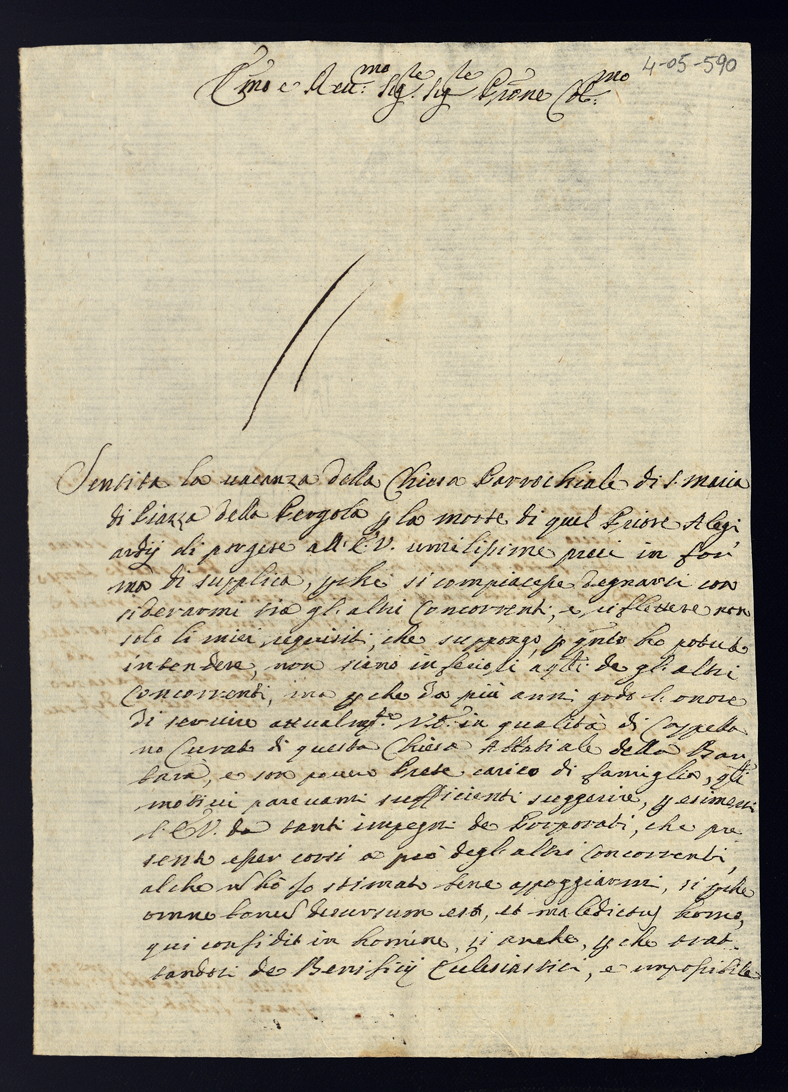 4-05-590
Emo e Reu:mo Sig:re Sig:re Prone Col:mo
Sentita la uacanza della Chiesa Parrochiale di S. Maria
di Piazza della Pergola p la morte di quel Priore Alegi
ardij di porgere all'E.V. umilissime preci in for
ma di supplica, pche si compiacesse degnarsi con
siderarmi tra gl'altri Concorrenti, e riflettere non
solo li miei requisiti, che suppongo, p qnto ho potuto
intendere, non siano inferiori a qlli de gl'altri
Concorrenti, ma pche da più anni godo l'onore
di seruire attualmte V.E. in qualità di Cappella
no Curato di questa Chiesa Abbatiale della Bar
bara, e son pouero Prete carico di famiglia, qli
motiui pareuanti sufficienti suggerire, p esimersi
l'E.V. da tanti impegni de Porporati, che pre
senti esser corsi a prò degl'altri Concorrenti,
alche n hò so stimato bene appoggiarmi, si pche
omne bonu desursum est, et maledictus homo,
qui confidit in homine, si anche, p che trat-
tandosi de Benificij Eclesiastici, e impossibile